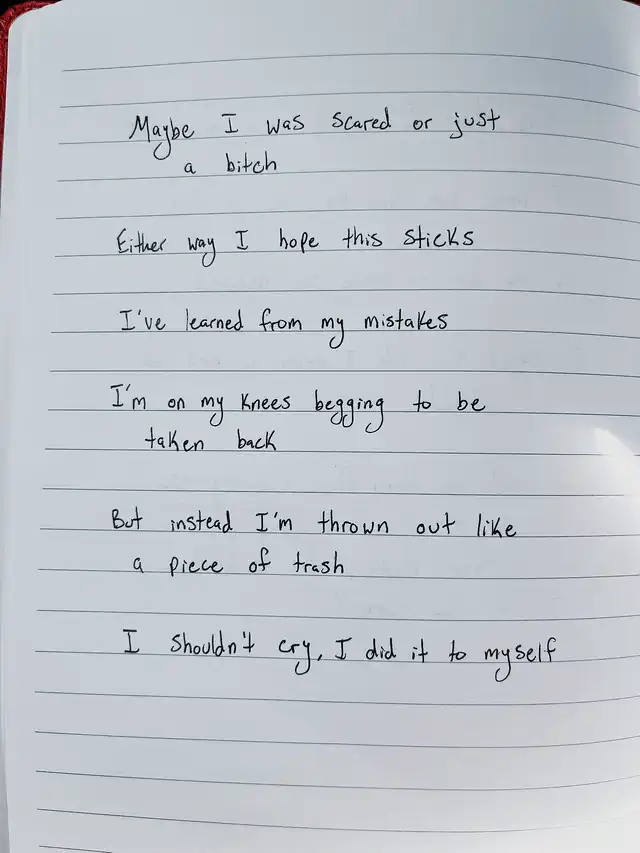 Maybe I was scared or just
a bitch
Either way I hope this sticks
I've learned from my mistakes
I'm on my knees begging to be
taken back
But instead I'm thrown out like
a piece of trash
I shouldn't cry, I did it to myself